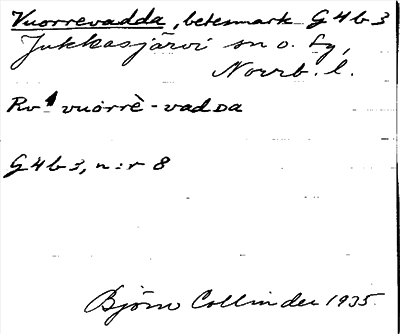 Vuorrevadda, betesmark G4b3
Jukkasjärvi sn o. tg,
Norrb. l.
Rv1 vuȯrrè-vadda
G4b3, n:r 8
Björn Collinder 1935.